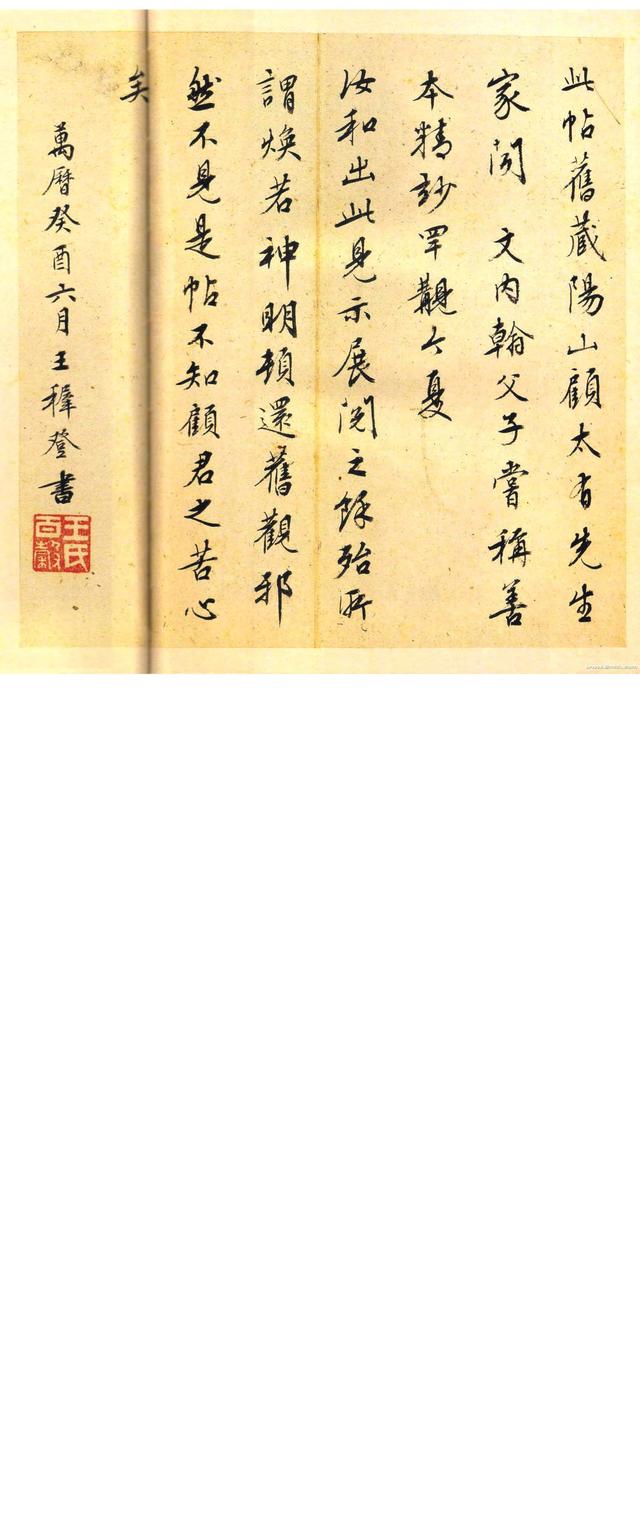 此帖舊藏陽山顧太有先生
家聞 文內翰父子嘗稱善
本精妙罕覯今夏
汝和出此見示展閱之餘殆所
謂煥若神明頓還舊觀邪
然不見是帖不知顧君之苦心
矣
萬曆癸酉六月王穉登書
王氏百穀